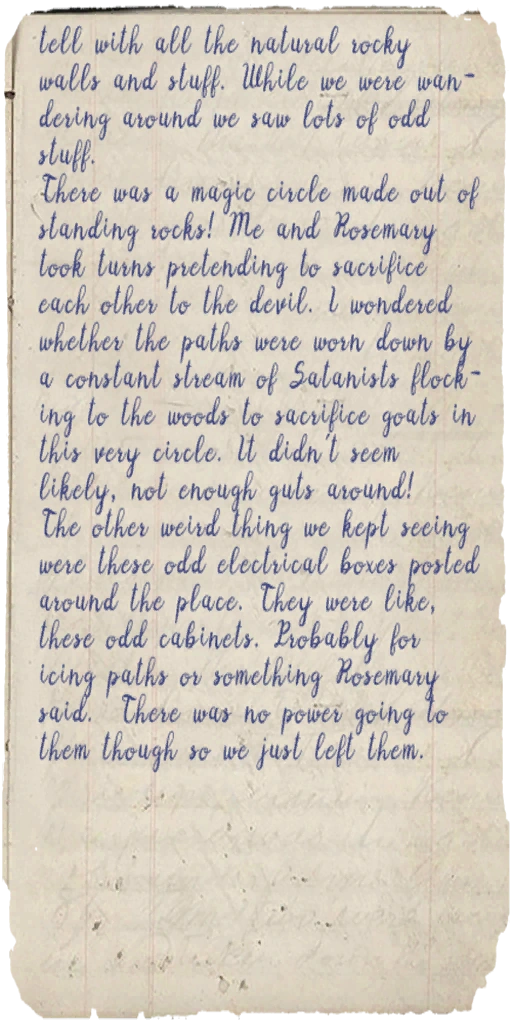 tell with all the natural rocky
walls and stuff. While we were wan-
dering around we saw lots of odd
stuff.
There was a magic circle made out of
standing rocks! Me and Rosemary
took turns pretending to sacrifice
each other to the devil. I wondered
whether the paths were worn down by
a constant stream of Satanists flock-
ing to the woods to sacrifice goats in
this very circle. It didn't seem
likely, not enough guts around!
The other weird thing we kept seeing
were these odd electrical boxes posted
around the place. They were like,
these odd cabinets. Probably for
icing paths or something Rosemary
said. There was no power going to
them though so we just left them.